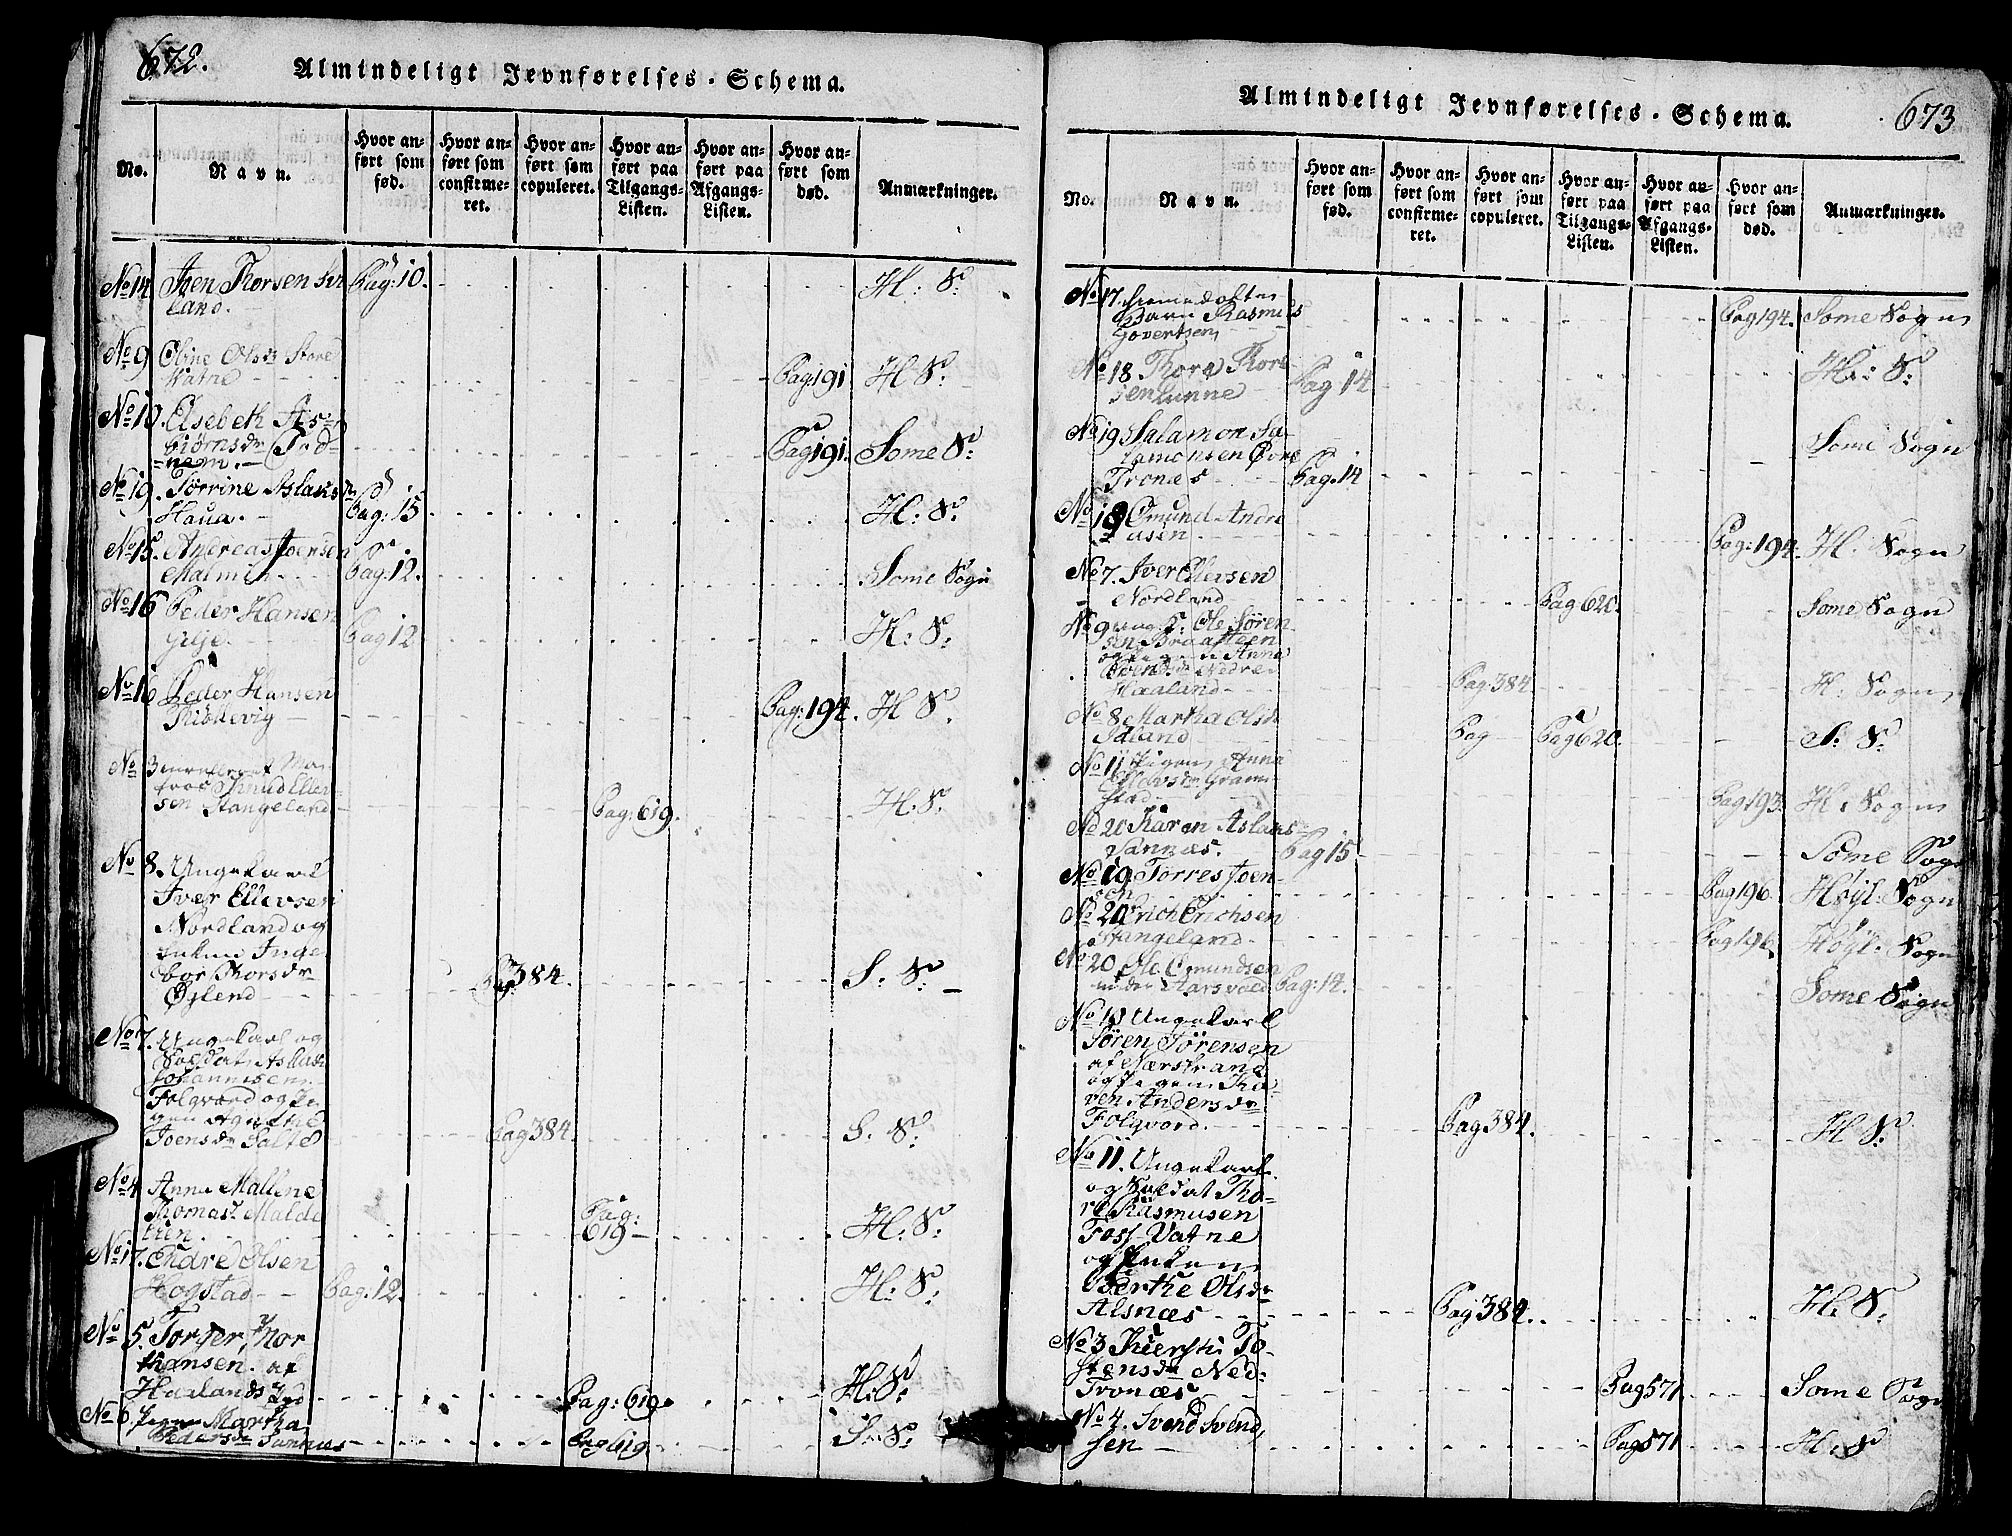 672.
Almindeligt Jevnførelses-Schema.
No.
Navn.
Hvor anført som fød.
Hvor anført som confirmeret.
Hvor anført som copuleret.
Hvor anført paa Tilgangs-Listen.
Hvor anført paa Afgangs-Listen.
Hvor anført som død.
Anmærkninger.
No 14 Jœn Thorsen Pag: 10. H: S:
land.
No 9 Oline Olsdr Store
Vatne Pag: 191 H: S:
No 10. Elsebeth As-
biørnsdr Sød-
-nem. Pag: 191. Some S:
No 19. Tørrine Aslaksdr
Haua. Pag: 15 H: S:
No 15. Andreas Joensen
Malmin Pag: 12. Some Sogn
No 16 Peder Hansen
Gilje. Pag 12 H: S:
No 16 Peder Hansen
Kiøllevig Pag: 194. H S.
No 3 enrolleret Ma-
tros Knud Eller-
sen Stangeland Pag: 619. H: S:
No 8. Ungekarl
Iver Ellevsen
Nordland og
Enken Inge-
bor Thorsdr
Øglend Pag 384. S: S:
No 7. Ungekarl og
Soldat Aslak
Johannesen
Folgvord og Pi-
gen Agnethe
Joensdr Salte Pag 384. S. S:
No 4 Anna Mallene
Thomasdr Malde
Pag: 619 H: S:
No 17. Endre Olsen
Hogstad Pag. 12. H: S:
No 5. Torger Thor
kansen. af
Haalands Pag: 619. H: S:
No 6. Pigen Martha
Pedersdr Sannæs Pag 619 S: S:
Almindeligt Jevnførelses-Schema.
673
No.
Navn.
Hvor anført som fød.
Hvor anført som confirmeret.
Hvor anført som copuleret.
Hvor anført paa Tilgangs-Listen.
Hvor anført paa Afgangs-Listen.
Hvor anført som død.
Anmærkninger.
No 17. hiemedøbte
Barn Rasmus
Govertsen Pag 194. Some Sogn
No 18 Thora Thore
sen Lunne Pag 14 H: S:
No 19 Salamon Sa-
lamonsen Øvre
Tronæs Pag. 14 Some Sogn
No 18 Omund Andre
asen Pag: 194. H. Sogn
No 7. Iver Ellevsen
Nordland Pag 620. Some Sogn
No 9 ung K. Ole Søren-
sen Braasteen
og Pigen Anna
Svendsdr Nedre
Haaland Pag: 384. H: Sogn
No 8 Martha Olsdr
Idland Pag Pag 620. S: S:
No 11 Pigen Anna
Gram-
stad Pag 193. H: Sogn
No 20 Karen Aslaks
Sannæs. Pag 15 Some Sogn
No 19 Tørres Joen-
sen Pag 196. Høyl: Sogn
No 20 Erich Erichsen
Stangeland Pag 196. Høyl: Sogn
No 20 Ole Omundsen
Aarsvold Pag: 14. Some Sogn
No 10 Ungekarl
Søren Sørensen
af Nærstrand
og Pigen Ka-
ren Andersdr
Folgvord. Pag 384. H S:
No 11. Ungekarl
og Soldat Tho-
re Rasmusen
Foss-Vatne
og Enken
Berthe Olsdr
Alsnæs Pag 384. H: S:
No 3 Kiersti To-
stensdr Ned:
Tronæs Pag 571 Some Sogn
No 4. Svend Svend-
sen Pag 571 H: S